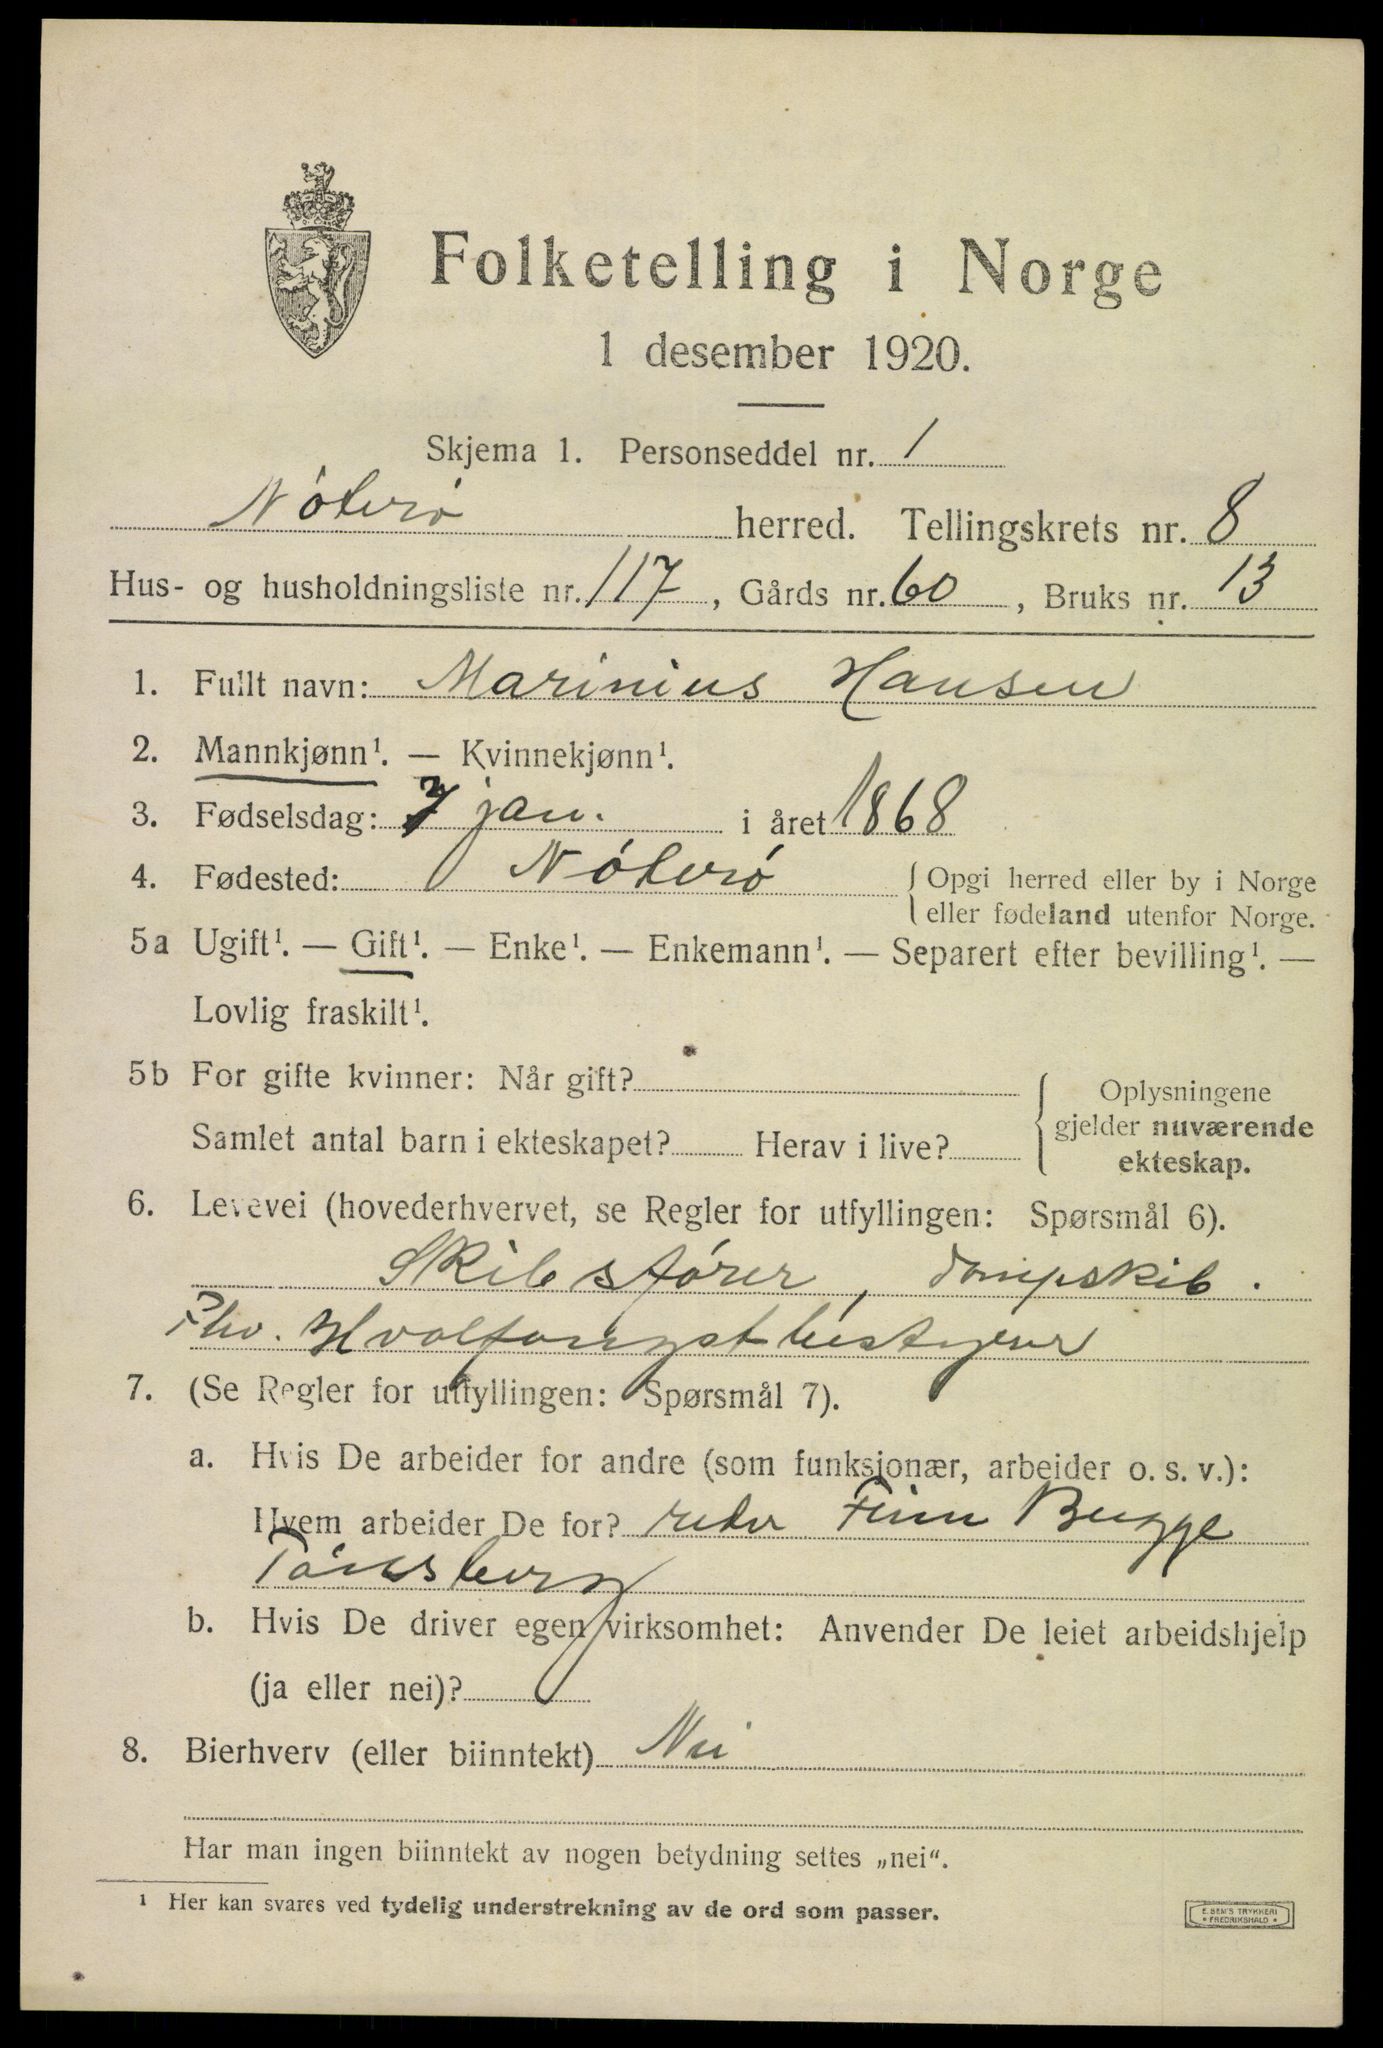 Folketelling i Norge
1 desember 1920.
Skjema 1. Personseddel nr. 1
Nöterö herred. Tellingskrets nr. 8
Hus- og husholdningsliste nr. 117, Gårds nr. 60, Bruks nr. 13
1. Fullt navn: Marinius Hansen
2. Mannkjønn¹. — Kvinnekjønn¹.
3. Fødselsdag: 7 jan. i året 1868
4. Fødested: Nöterö { Opgi herred eller by i Norge
eller fødeland utenfor Norge.
5a Ugift¹. — Gift¹. — Enke¹. — Enkemann¹. — Separert efter bevilling¹. —
Lovlig fraskilt¹.
5b For gifte kvinner: Når gift?
Samlet antal barn i ekteskapet? Herav i live?
{ Oplysningene
gjelder nuværende
ekteskap.
6. Levevei (hovederhvervet, se Regler for utfyllingen: Spørsmål 6).
Skibsförer, dampskib.
Hvalfangstbestyrer
7. (Se Regler for utfyllingen: Spørsmål 7).
a. Hvis De arbeider for andre (som funksjonær, arbeider o. s. v.):
Hvem arbeider De for? reder Finn Bugge
Tönsberg
b. Hvis De driver egen virksomhet: Anvender De leiet arbeidshjelp
(ja eller nei)?
8. Bierhverv (eller biinntekt) Nei
Har man ingen biinntekt av nogen betydning settes „nei“.
¹ Her kan svares ved tydelig understrekning av de ord som passer.
E. SEM'S TRYKKERI
• FREDRIKSHALD •